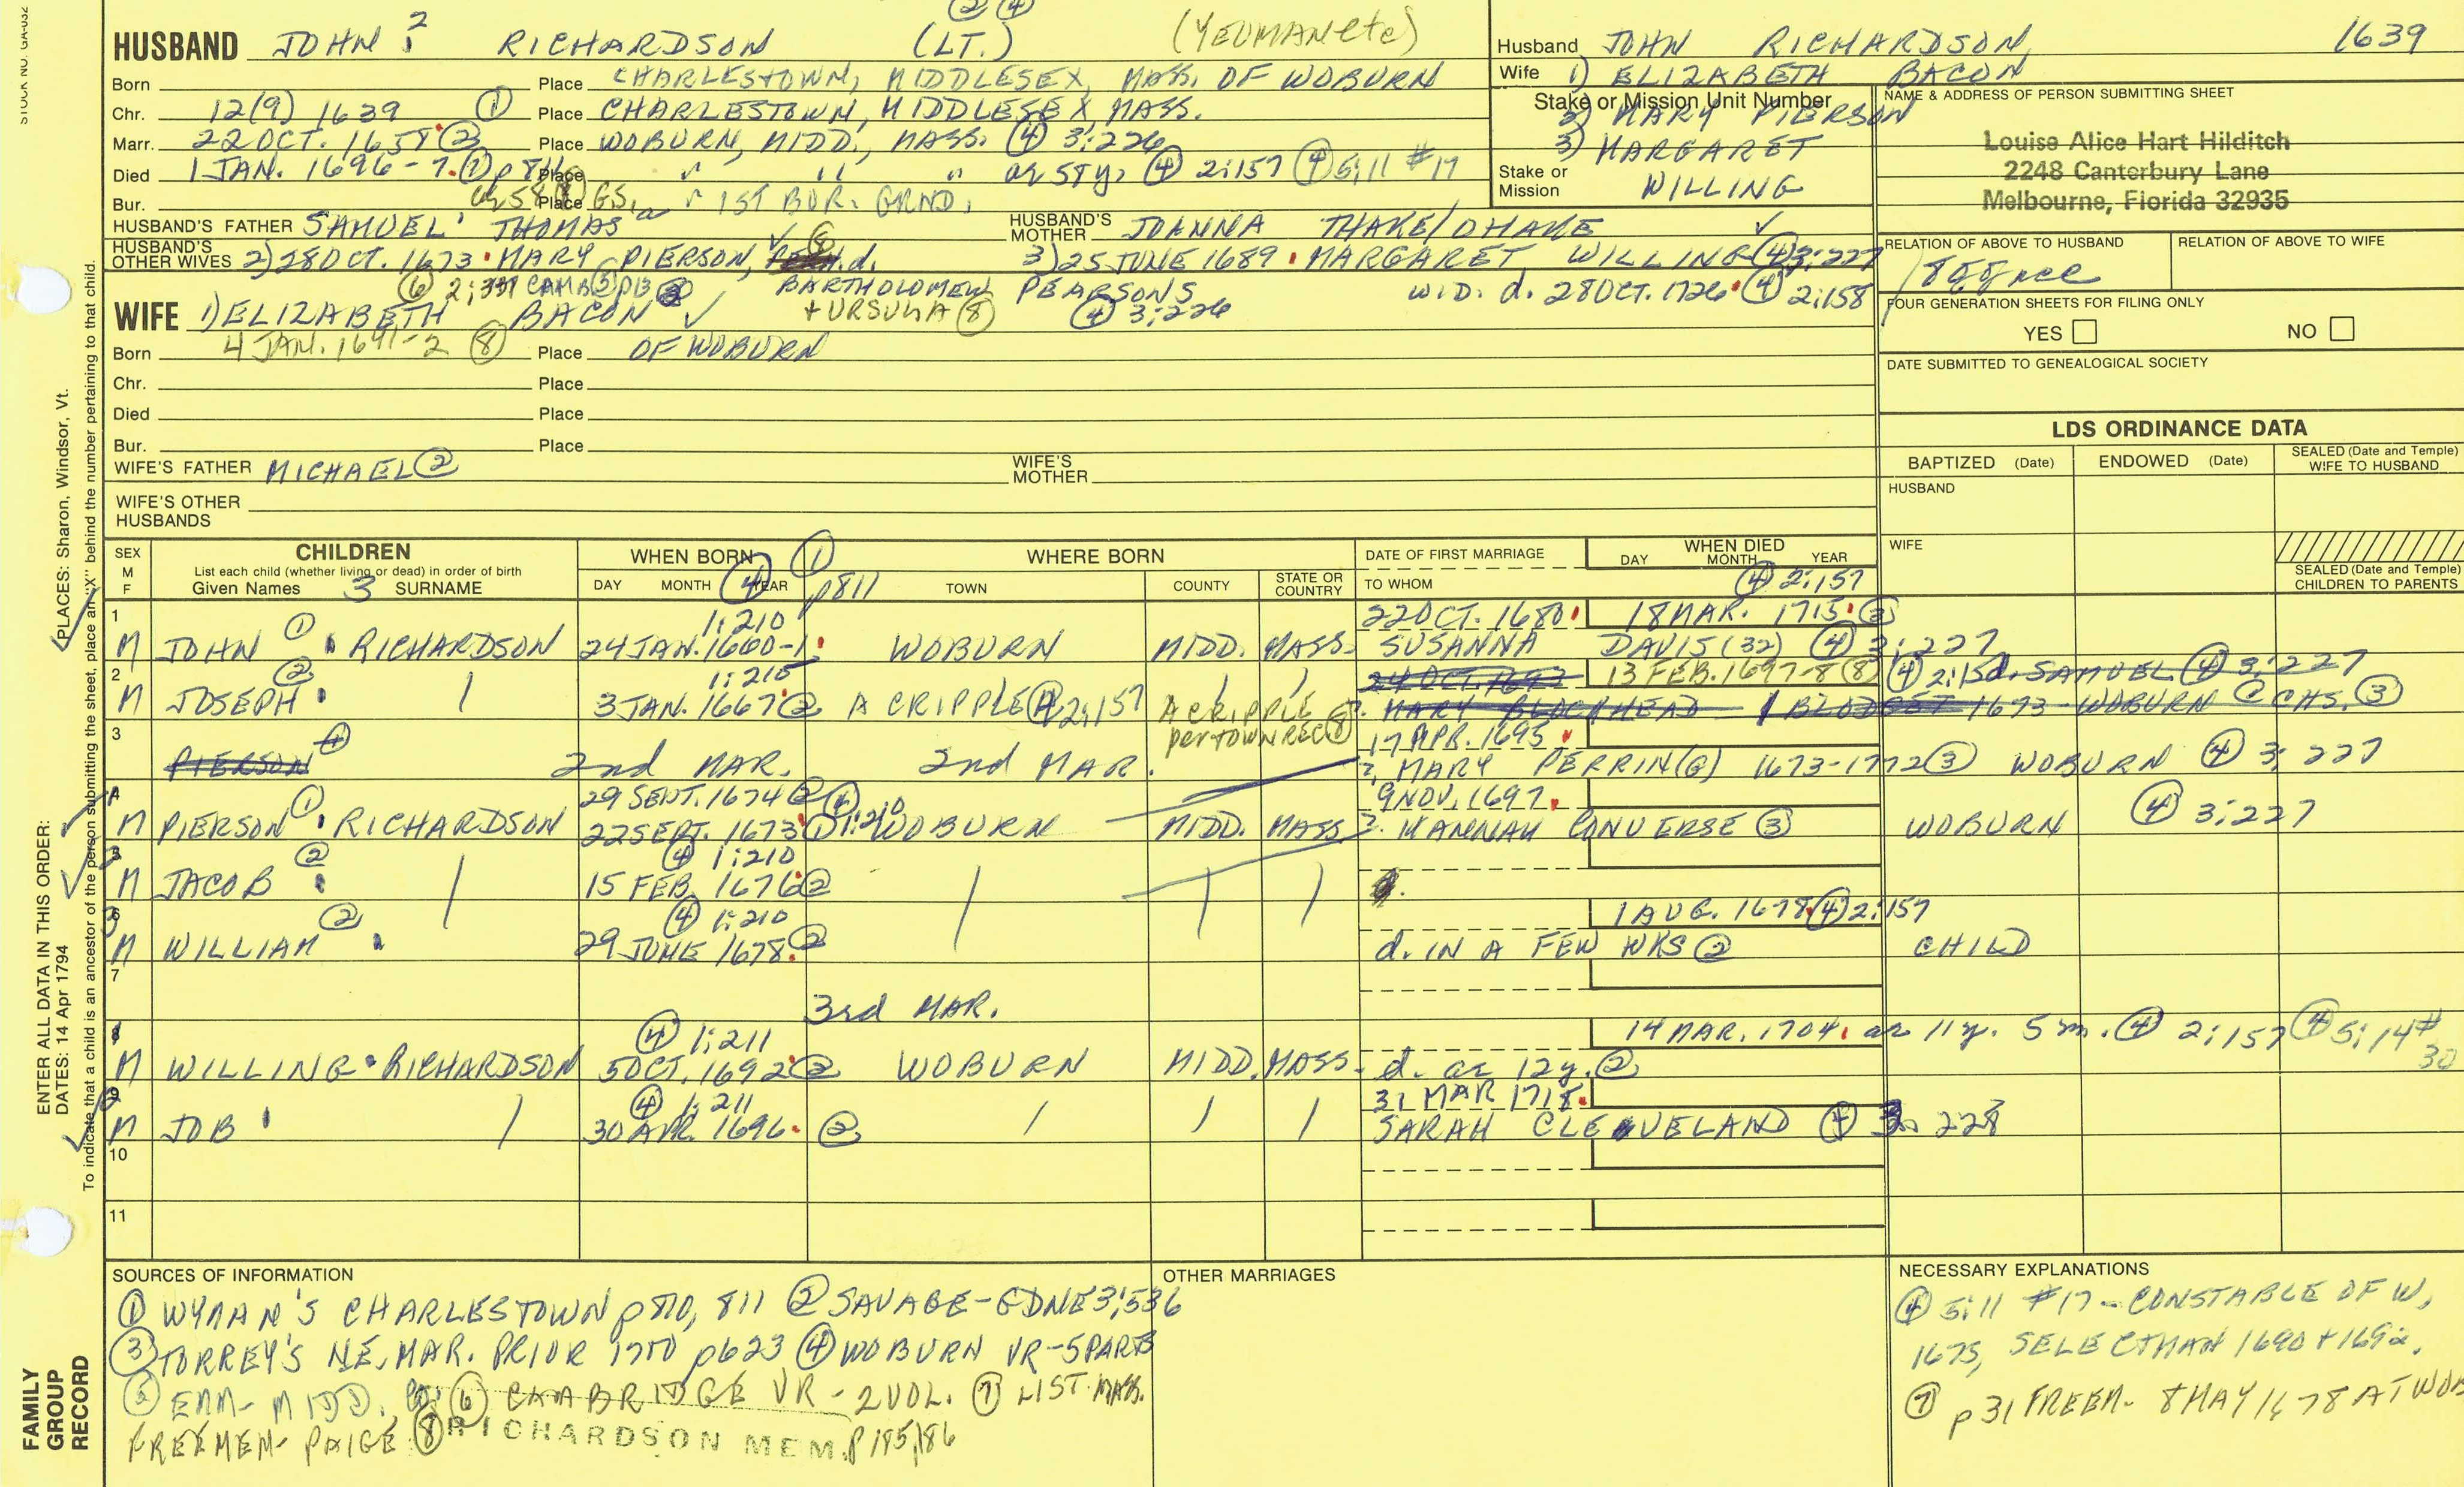 STOCK NO. GA-032
② ④
HUSBAND JOHN 2 RICHARDSON (LT.) (YEUMAN etc)
Born Place CHARLESTOWN, MIDDLESEX, MASS. OF WOBURN
Chr. 12(9) 1639 ① Place CHARLESTOWN, MIDDLESEX, MASS.
Marr. 22 OCT. 1658 ② Place WOBURN, MIDD., MASS. ④ 3:226
Died 1 JAN. 1696-7. ① p 811 Place " " " ae 57 y. ④ 2:157 ④ 5:11 #17
Bur. ae 58 GS, Place " 1ST BUR. GRND.
HUSBAND'S FATHER SAMUEL' THOMAS
HUSBAND'S MOTHER JOANNA THAKE/DHAKE ✓
HUSBAND'S OTHER WIVES 2) 28 OCT. 1673 MARY PIERSON, d. 3) 25 JUNE 1689 MARGARET WILLING ④ 3:227
⑥ 2:331 CAMB BARTHOLOMEW PEARSONS WID. d. 28 OCT. 1726 ④ 2:158
+ URSULA ⑧ ④ 3:226
WIFE 1) ELIZABETH BACON ✓
Born 4 JAN. 1641-2 ⑧ Place OF WOBURN
Chr. Place
Died Place
Bur. Place
WIFE'S FATHER MICHAEL ②
WIFE'S MOTHER
WIFE'S OTHER HUSBANDS
Husband JOHN RICHARDSON 1639
Wife 1) ELIZABETH BACON
Stake or Mission Unit Number
2) MARY PIERSON
3) MARGARET
Stake or Mission WILLING
NAME & ADDRESS OF PERSON SUBMITTING SHEET
Louise Alice Hart Hilditch
2248 Canterbury Lane
Melbourne, Florida 32935
RELATION OF ABOVE TO HUSBAND
RELATION OF ABOVE TO WIFE
FOUR GENERATION SHEETS FOR FILING ONLY
YES NO
DATE SUBMITTED TO GENEALOGICAL SOCIETY
LDS ORDINANCE DATA
BAPTIZED (Date) ENDOWED (Date) SEALED (Date and Temple) WIFE TO HUSBAND
HUSBAND
WIFE
SEALED (Date and Temple) CHILDREN TO PARENTS
SEX M F
CHILDREN
List each child (whether living or dead) in order of birth
Given Names 3 SURNAME
WHEN BORN ①
DAY MONTH YEAR ④ p811
WHERE BORN
TOWN COUNTY STATE OR COUNTRY
DATE OF FIRST MARRIAGE
TO WHOM
WHEN DIED
DAY MONTH YEAR
④ 2:157
1 1:210 22 OCT. 1680 18 MAR. 1715 ②
M JOHN ① RICHARDSON 24 JAN. 1660-1 WOBURN MIDD. MASS. SUSANNA DAVIS (32) ④ 3:227
2 1:215 24 OCT. 1693 13 FEB. 1697-8 ⑧ ④ 2:15 d. SAMUEL ④ 3:227
M JOSEPH ② 3 JAN. 1667 ② A CRIPPLE ④ 2:157 A CRIPPLE per TOWN REC ⑧ MARY BLOCKHEAD 1673 WOBURN CHS. ③
3 17 APR. 1695
PIERSON ④ 2nd MAR. 2nd MAR. MARY PERRIN(G) 1673-1772 ③ WOBURN ④ 3:227
29 SEPT. 1674 ② 9 NOV. 1697
M PIERSON ① RICHARDSON 22 SEPT. 1673 ① 1:210 WOBURN MIDD. MASS. HANNAH CONVERSE ③ WOBURN ④ 3:227
④ 1:210
M JACOB ② 15 FEB. 1676 ②
6 ④ 1:210 1 AUG. 1678 ④ 2:157
M WILLIAM ② 29 JUNE 1678 ② d. IN A FEW WKS ② CHILD
7
3rd MAR.
④ 1:211 14 MAR. 1704 ae 11 y. 5 m. ④ 2:157 ④ 5:14 #30
M WILLING RICHARDSON 5 OCT. 1692 ② WOBURN MIDD. MASS. d. ae 12 y. ②
9 ④ 1:211 31 MAR 1718
M JOB 30 APR. 1696 ② SARAH CLEAVELAND ④ 3:228
10
11
SOURCES OF INFORMATION
① WYMAN'S CHARLESTOWN p 810, 811 ② SAVAGE-GDNE 3:536
③ TORREY'S NE. MAR. PRIOR 1700 p623 ④ WOBURN VR-5PARTS
⑤ ERM- MIDD. Co. ⑥ CAMBRIDGE VR - 2 VOL. ⑦ LIST MASS.
FREEMEN- PAIGE ⑧ RICHARDSON MEM. p 185,186
OTHER MARRIAGES
NECESSARY EXPLANATIONS
④ 5:11 #17 - CONSTABLE OF W,
1675, SELECTMAN 1690 + 1692.
⑦ p 31 FREEM- 8 MAY 1678 AT WOB
PLACES: Sharon, Windsor, Vt.
ENTER ALL DATA IN THIS ORDER:
DATES: 14 Apr 1794
To indicate that a child is an ancestor of the person submitting the sheet, place an "X" behind the number pertaining to that child.
FAMILY GROUP RECORD